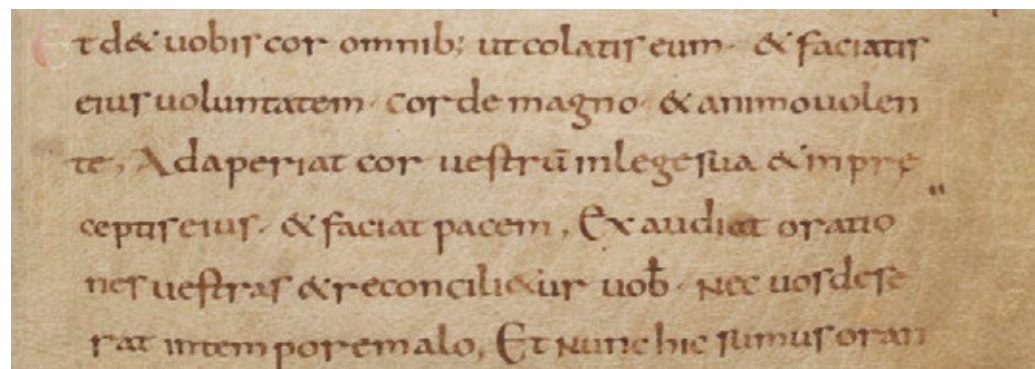 Et det uobis cor omnib; ut colatis eum · & faciatis
eius uoluntatem · corde magno · & animo uolen
te, Adaperiat cor uestrū in lege sua & in pre
ceptis eius · & faciat pacem, Exaudiat oratio
nes uestras & reconcilietur uob · nec uos dese
rat in tempore malo, Et nunc hic sumus oran